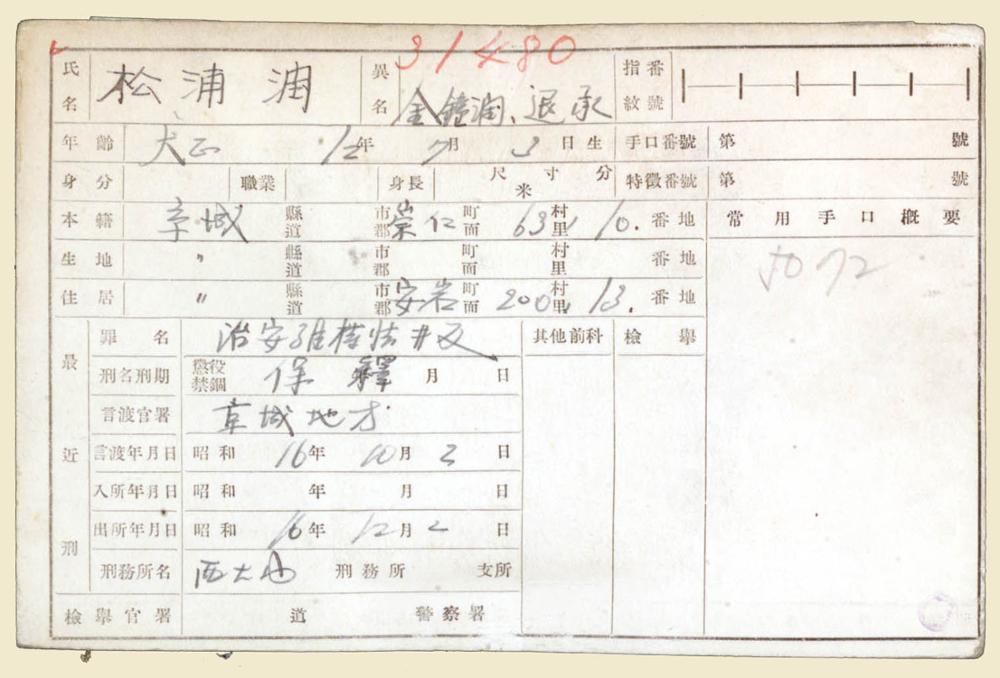 31480
氏名 松浦潤 異名 金鐘潤、退永 指紋番號
年齡 大正 12年 7月 3日生 手口番號 第 號
身分 職業 身長 尺寸分 米 特徵番號 第 號
本籍 京城 縣道 市郡 崇仁 町面 63 村里 10. 番地 常用手口概要
生地 〃 縣道 市郡 町面 村里 番地 5072
住居 〃 縣道 市郡 安岩 町面 200 村里 13. 番地
最近刑 罪名 治安維持法井反 其他前科 檢擧
刑名刑期 懲役禁錮 保釋 月 日
言渡官署 京城地方
言渡年月日 昭和 16年 10月 2日
入所年月日 昭和 年 月 日
出所年月日 昭和 16年 12月 2日
刑務所名 西大門 刑務所 支所
檢擧官署 道 警察署